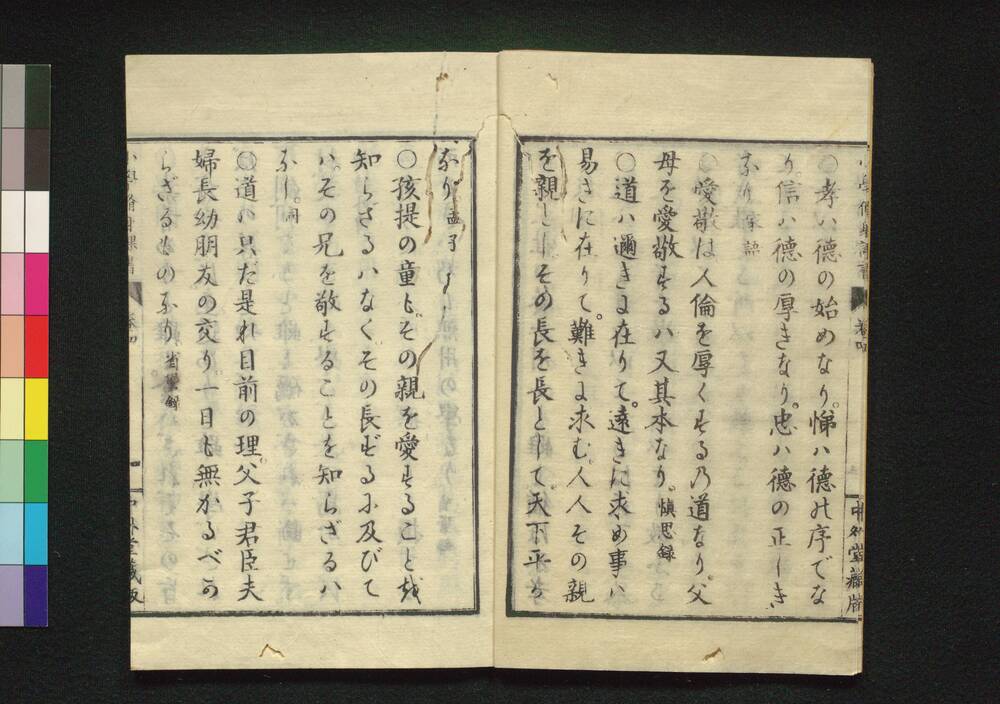 ○孝ハ德の始めなり。悌ハ德の序でな
り。信ハ德の厚きなり。忠ハ德の正しき
なり 家語
○愛敬は人倫を厚くする乃道なり。父
母を愛敬するハ又其本なり。愼思録
○道ハ邇きに在りて。遠きに求め事ハ
易きに在りて。難きに求む。人人その親
を親としその長を長として。天下平か
なり 孟子
○孩提の童も。その親を愛することを
知らざるハなく。その長ずるに及びて
ハ。その兄を敬することを知らざるハ
なし。同
○道ハ只だ是れ目前の理。父子君臣夫
婦長幼朋友の交り。一日も無かるべか
らざるものなり 省𧬆録
中外堂藏版